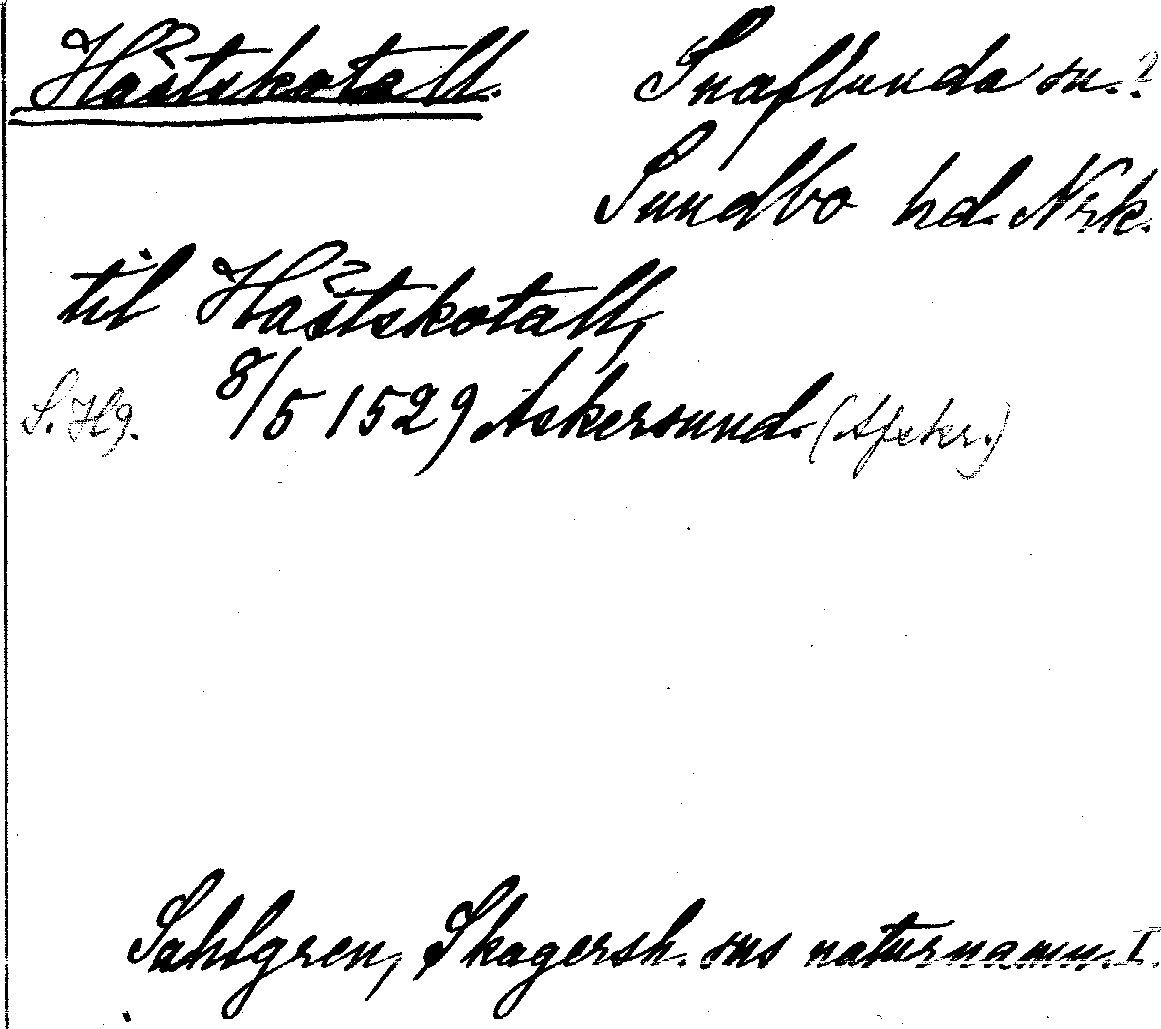 Håstskotall. Snaflunda sn.?
Sundbo hd. Nrk.
til Håstskotall,
S. Hg. 8/5 1529 Askersund. (Afskr.)
Sahlgren, Skagersh. sns naturnamn. I.